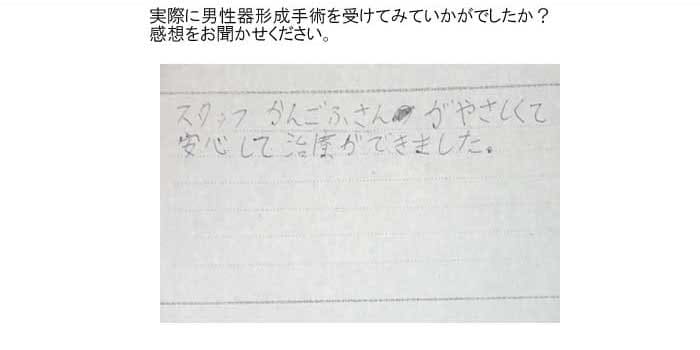 実際に男性器形成手術を受けてみていかがでしたか？
感想をお聞かせください。
スタッフ かんごふさん がやさしくて
安心して治療ができました。